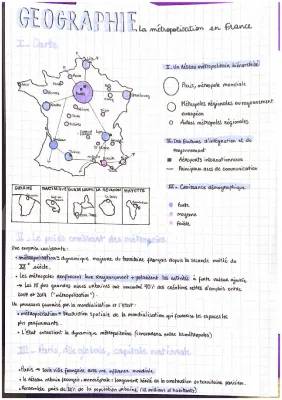 GEOGRAPHIE La métropolisation en France
I - Carte
I. Un réseau métropolitain hiérarchisé
Paris, métropole mondiale
Métropoles régionales au rayonnement
européen
Autres métropoles régionales
II. Des facteurs d'intégration et de
rayonnement
Aéroports internationaux
Principaux axes de communication
III - Croissance démographique
forte
moyenne
faible
Paris
Strasbourg
GUYANE MARTINIQUE GUADELOUPE LA REUNION MAYOTTE
II - Le poids croissant des métropoles
Une emprise croissante :
métropolisation : dynamique majeure du territoire français depuis la seconde moitié du
XXe siècle.
Les métropoles renforcent leur rayonnement et polarisent les activités à forte valeur ajoutée
→ Les 15 plus grandes aires urbaines ont concentré 90% des créations nettes d'emplois entre
Un processus favorisé par la mondialisation et l'Etat :
métropolisation = traduction spatiale de la mondialisation qui favorise les espaces les
plus performants.
L'Etat accentue la dynamique métropolitaine
III - Paris, capitale nationale
Paris → seule ville française avec une influence mondiale.
Le réseau urbain français : monocéphale : longtemps hérité de la construction du territoire parisien.
Rassemble près de 20% de la population urbaine (12 millions d'habitants)